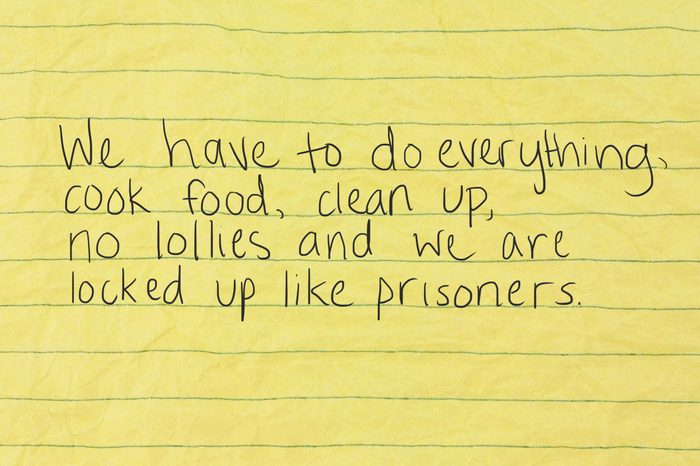 We have to do everything,
cook food, clean up,
no lollies and we are
locked up like prisoners.